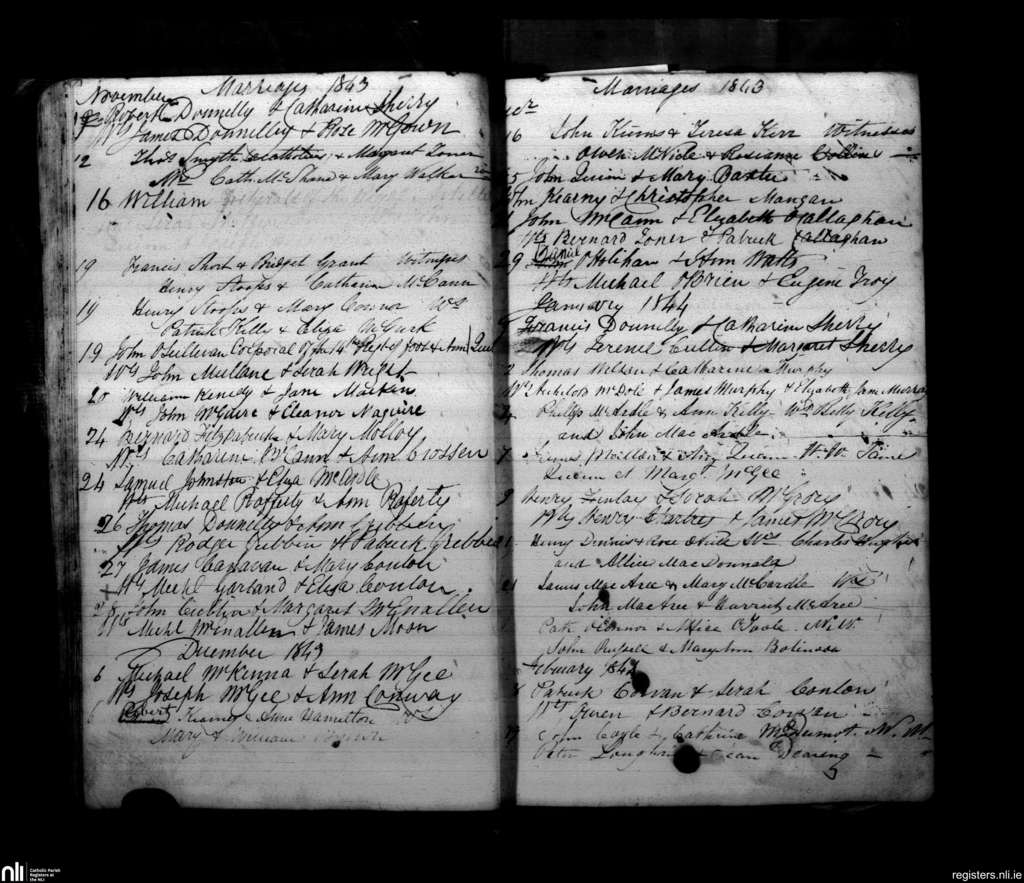 Marriages 1843
November
Robert Donnelly & Catharine Sherry
Ws James Donnelly & Rose McGown
12 Thos Smyth & Margaret Toner
Cath. McShane & Mary Walker
16 William
19 Francis Short & Bridget Grant Witnesses
Henry Stoops & Catherine McCann
19 Henry Stoops & Mary Connor Ws
Patrick Kelly & Eliza McGurk
19 John O'Sullivan Corporal of the 14th Regt of foot & Ann
Ws John Mullane & Serah Wright
20 William Kenedy & Jane Mackin
Ws John McGuire & Eleanor Maguire
24 Bernard Fitzpatrick & Mary Molloy
Ws Catharine McCann & Ann Crossen
24 Samuel Johnston & Eliza McArdle
Ws Michael Rafferty & Ann Raferty
26 Thomas Donnelly & Ann Gribbin
Ws Rodger Gribbin & Patrick Gribbin
27 James Canavan & Mary Conlon
Ws Michl Garland & Eliza Conlon
28 John Cublin & Margaret McEnallen
Ws Michl McEnallen & James Moon
December 1843
6 Michael McKenna & Serah McGee
Ws Joseph McGee & Ann Conway
Robert Kearns & Anne Hamilton Ws
Mary & William
Marriages 1843
16 John Kerins & Teresa Kerr Witnesses
Owen McVicle & Roseanne Collins
John Quinn & Mary Baxter
Kearny & Christopher Mangan
John McCann & Elyzabeth O'Callaghan
Ws Bernard Toner & Patrick Callaghan
29 Daniel O'Holihan & Ann Watts
Ws Michael O'Brien & Eugene Troy
January 1844
Francis Donnelly & Catharine Sherry
Ws Terence Cullen & Margaret Sherry
Thomas & Catharine Murphy
Ws Nicholas McDole & James Murphy & Elyzabeth Jane Murray
Phillip McArdle & Ann Kelly Ws
and John Mac Ardle
7 James & Ann Quinn W.W. Jaine
Quinn et Margt McGee
9 Henry Finlay & Serah McGrory
Ws Henry & James McCrory
Henry Dennis & Rose Ws Charles Hughes
and Allice MacDonnald
James MacAree & Mary McCardle Ws
John MacAree & Harriet McAree
Patk O'Connor & Alice O'Toole W.W.
John Russell & Mary Ann Robinson
February 1844
Patrick Corvan & Serah Conlon
Ws Owen & Bernard Corvan
John Cagle & Catherine McDermot W.W.
Peter Loughran & Jean Dearing
nli
Catholic Parish
Registers at
the NLI
registers.nli.ie